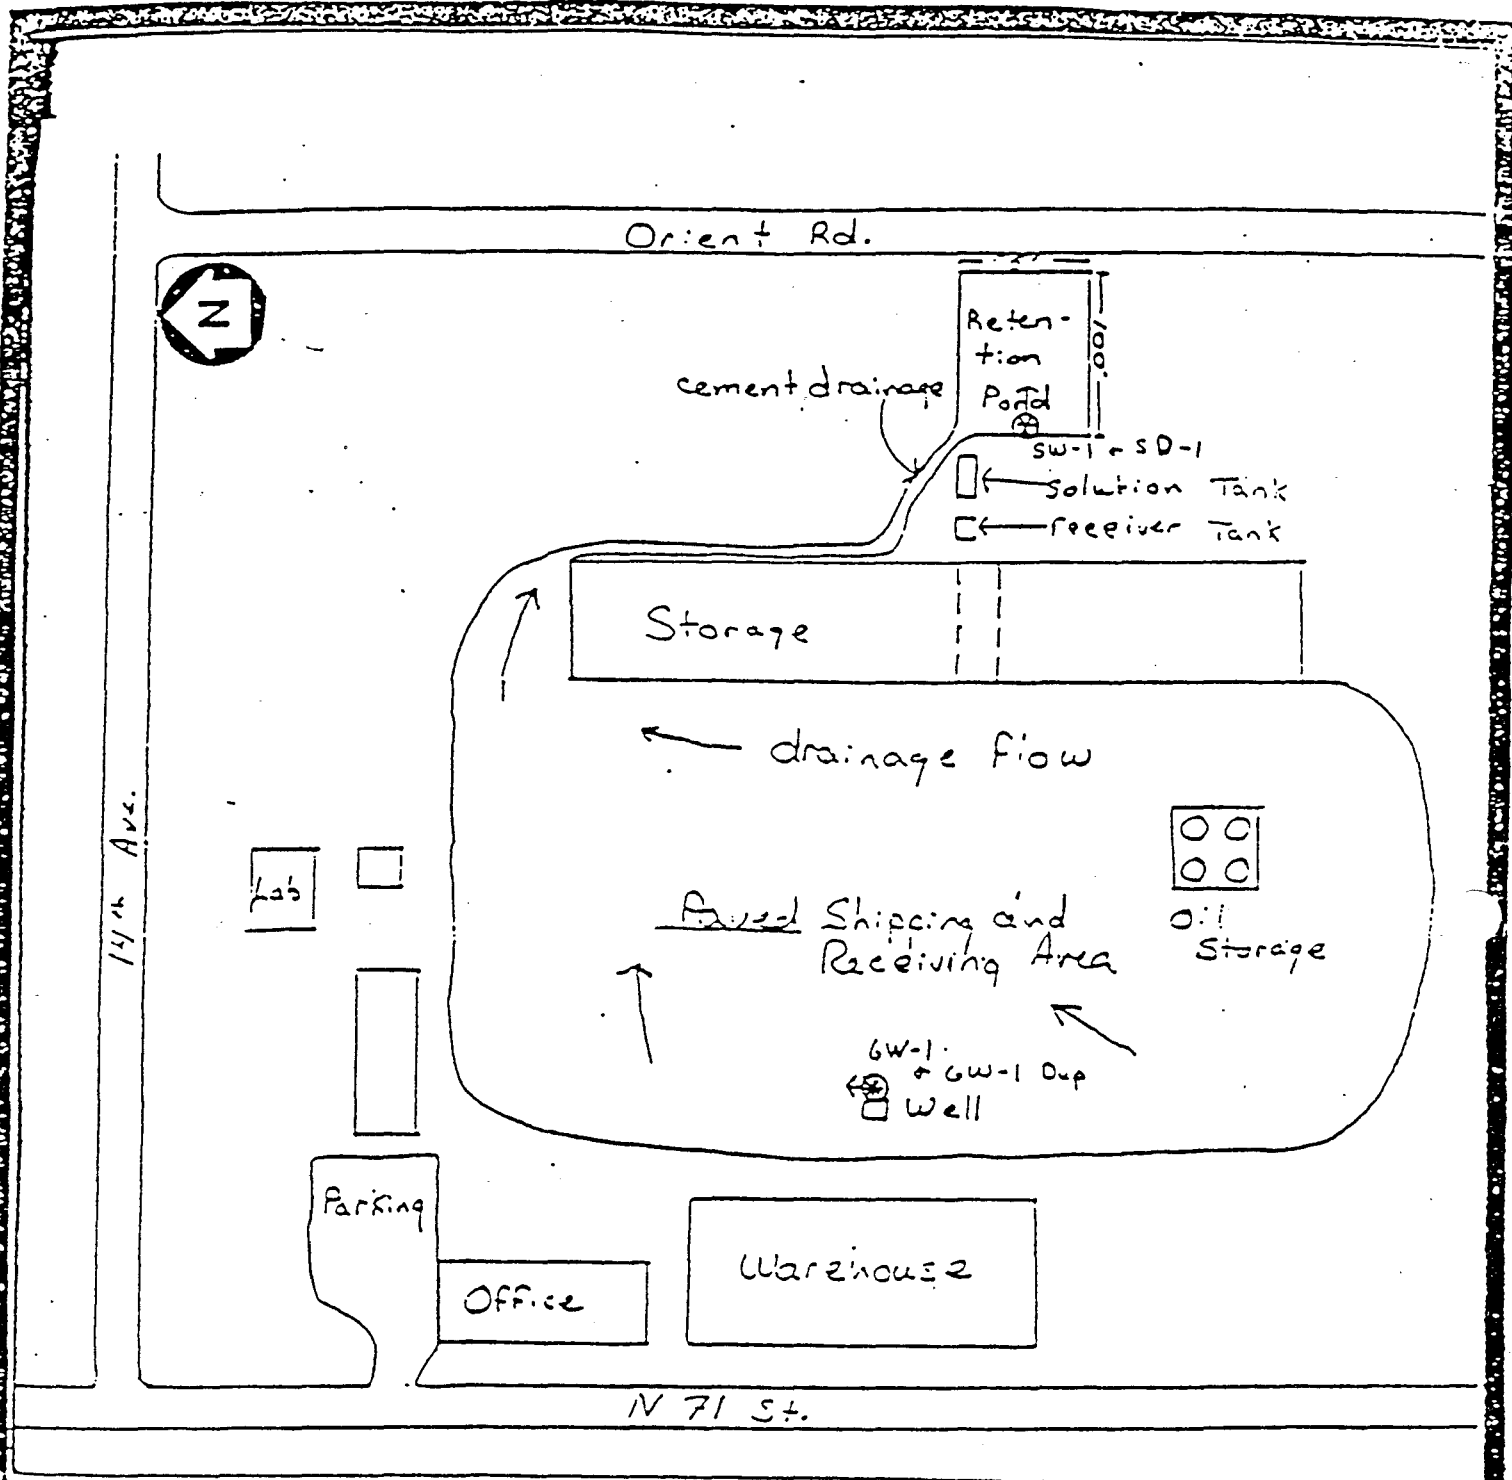 Orient Rd.
N
Reten-
tion
Pond
100'
cement drainage
SW-1 & SD-1
Solution Tank
receiver Tank
Storage
drainage flow
14th Ave.
Lab
Paved Shipping and
Receiving Area
Oil
Storage
GW-1
& GW-1 Dup
Well
Parking
Office
Warehouse
N 71 St.